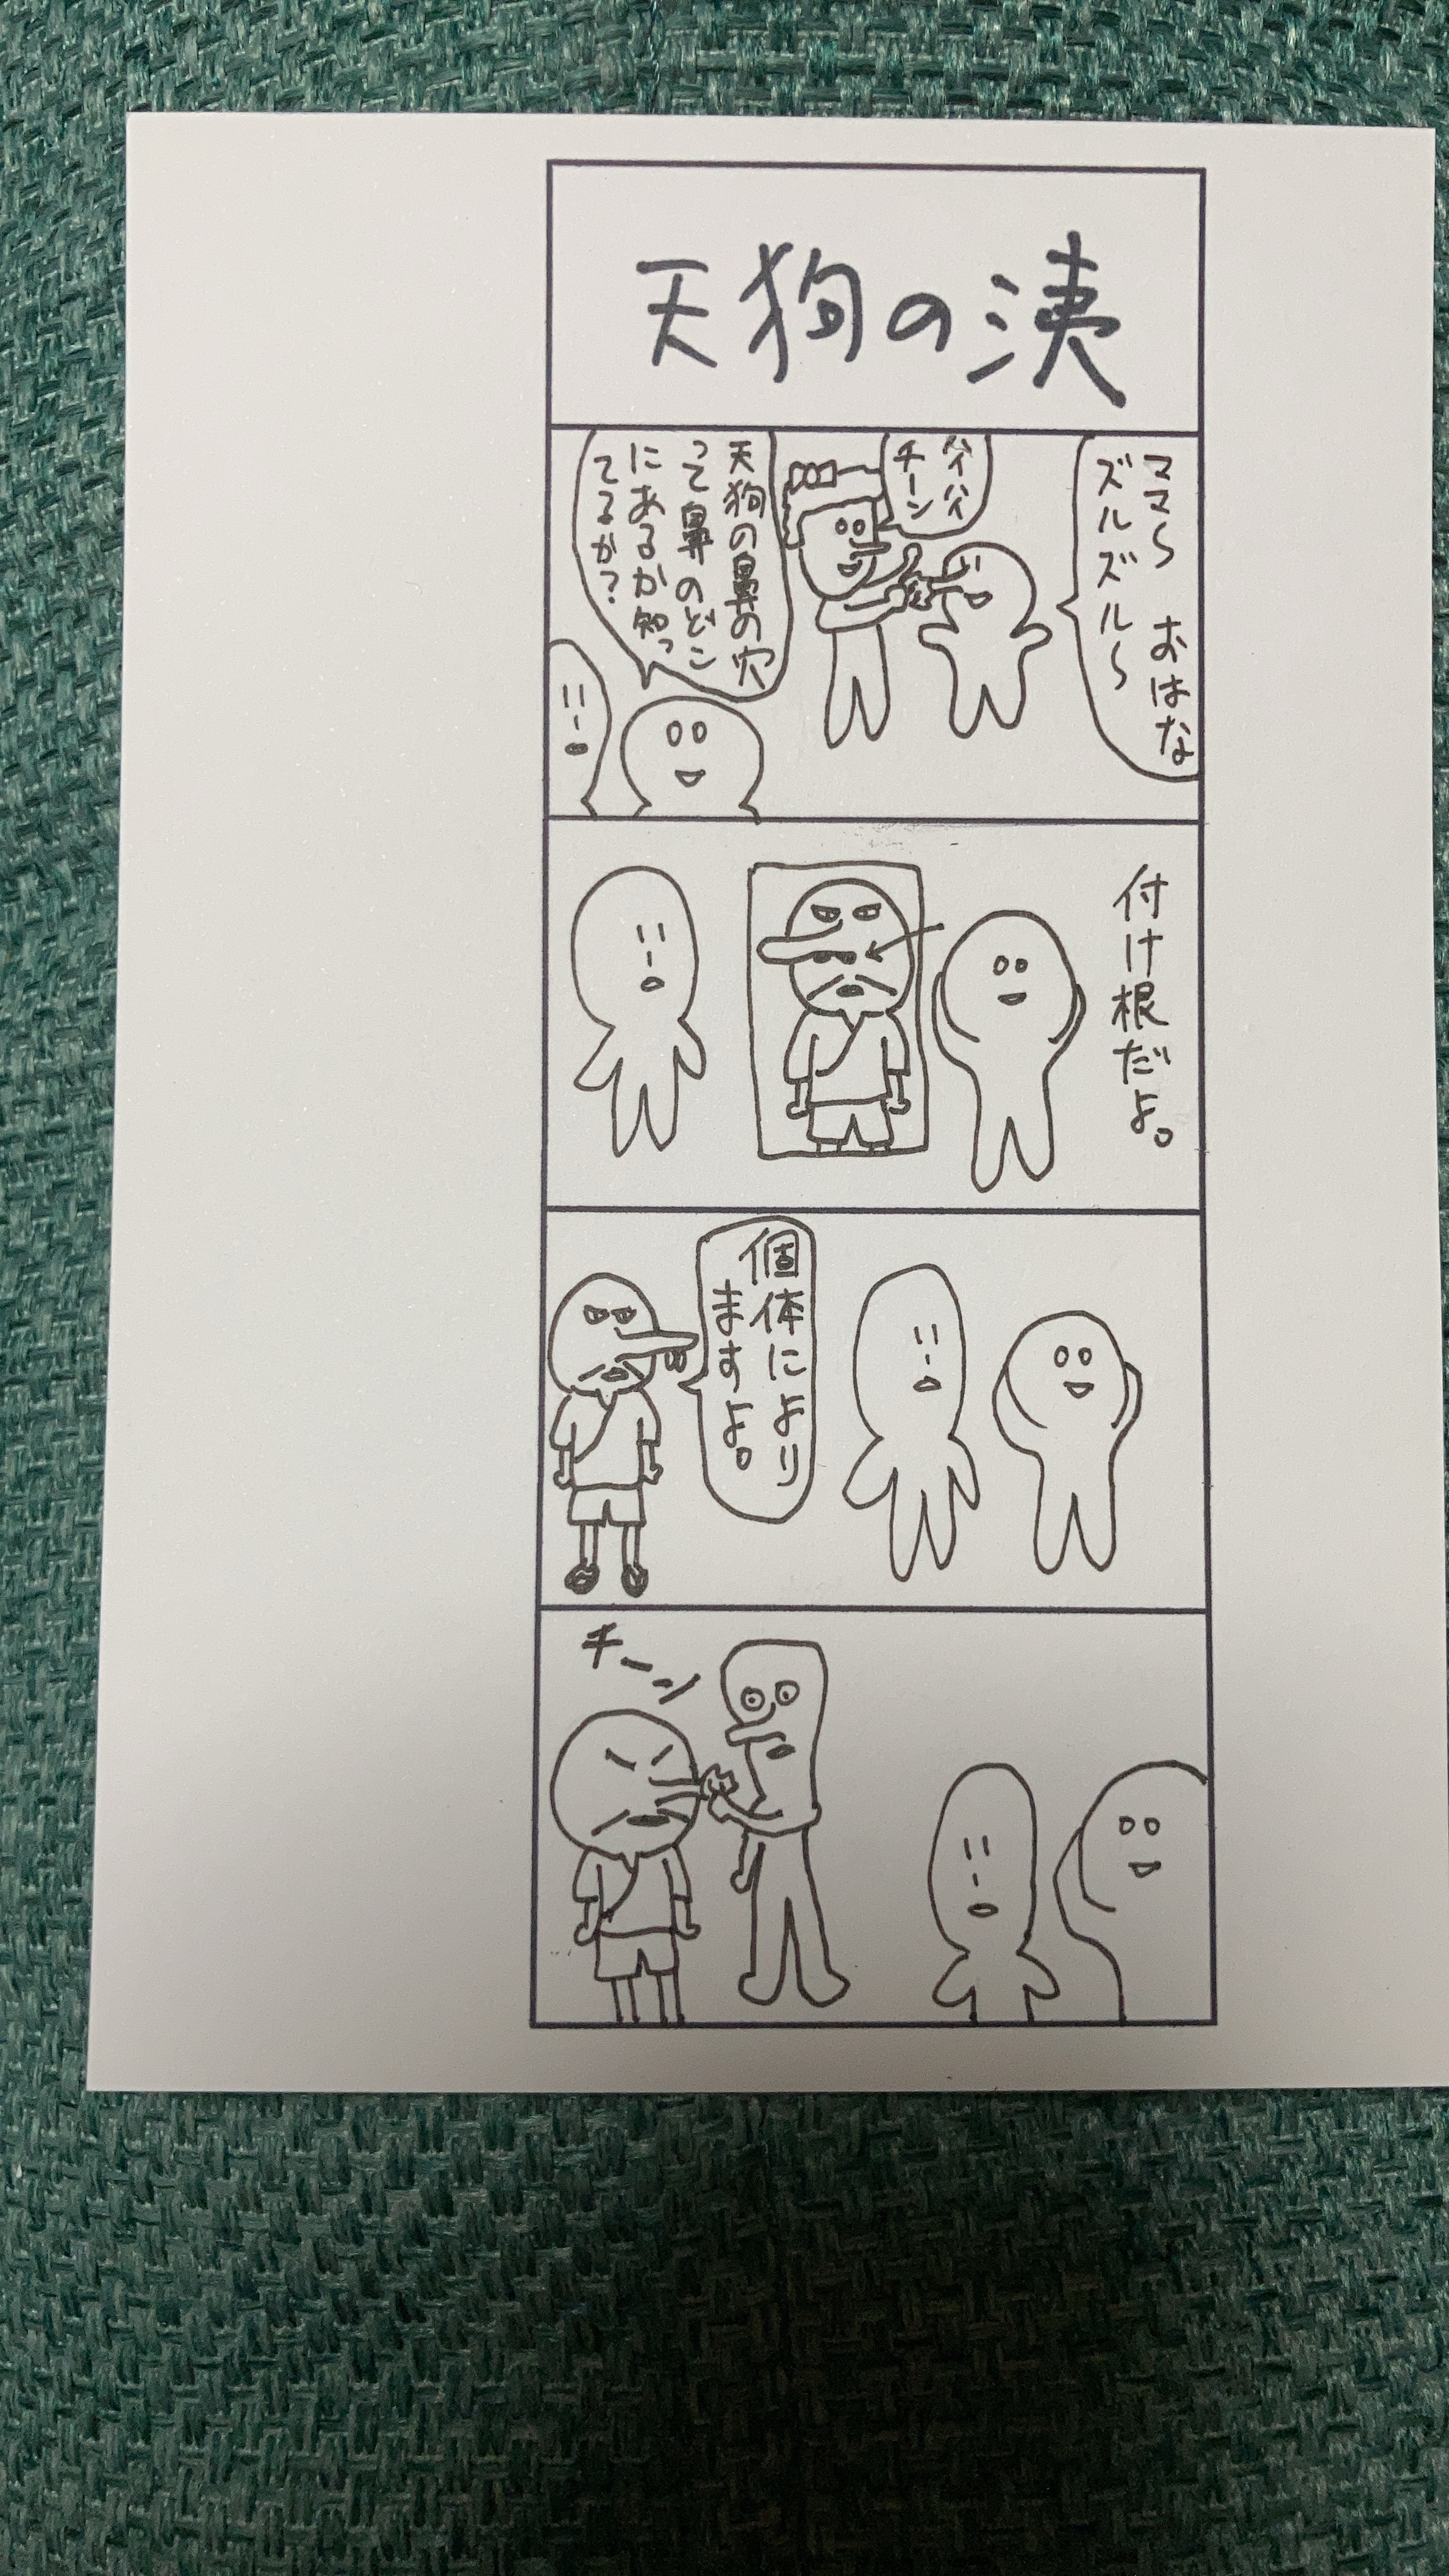 天狗の洟
ママ〜 おはな
ズルズル〜
ハイハイ
チーン
天狗の鼻の穴
って鼻のどこ
にあるか知っ
てるか？
付け根だよ。
個体により
ますよ。
チーン